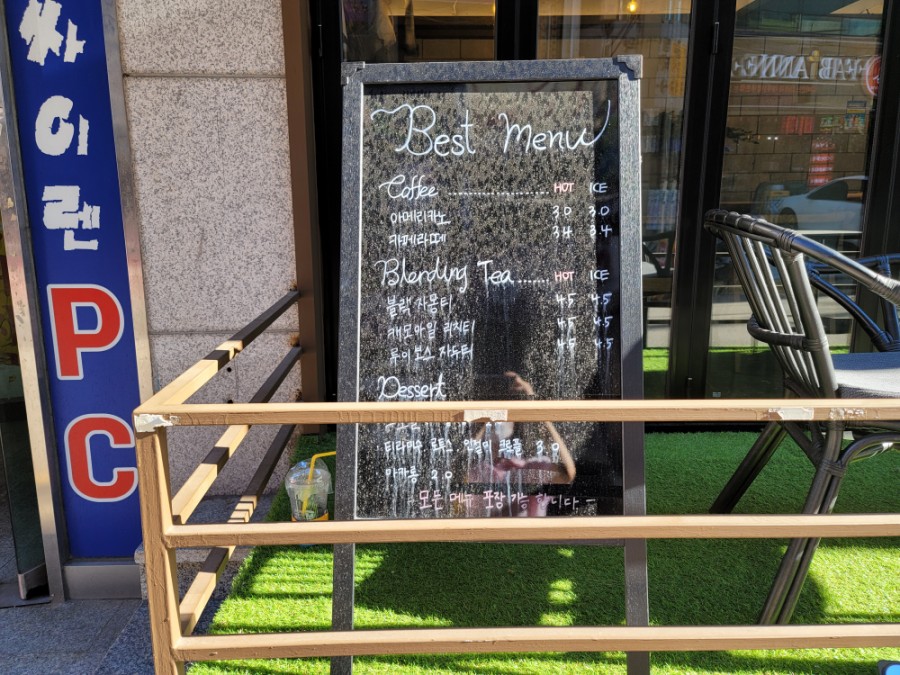 싸이렌PC
Best Menu
Coffee HOT ICE
아메리카노 3.0 3.0
카페라떼 3.4 3.4
Blending Tea HOT ICE
블랙 자몽티 4.5 4.5
캐모마일 리치티 4.5 4.5
루이보스 자두티 4.5 4.5
Dessert
티라미수 로투스 인절미 크로플 3.0
마카롱 2.0
- 모든 메뉴 포장 가능 합니다. -